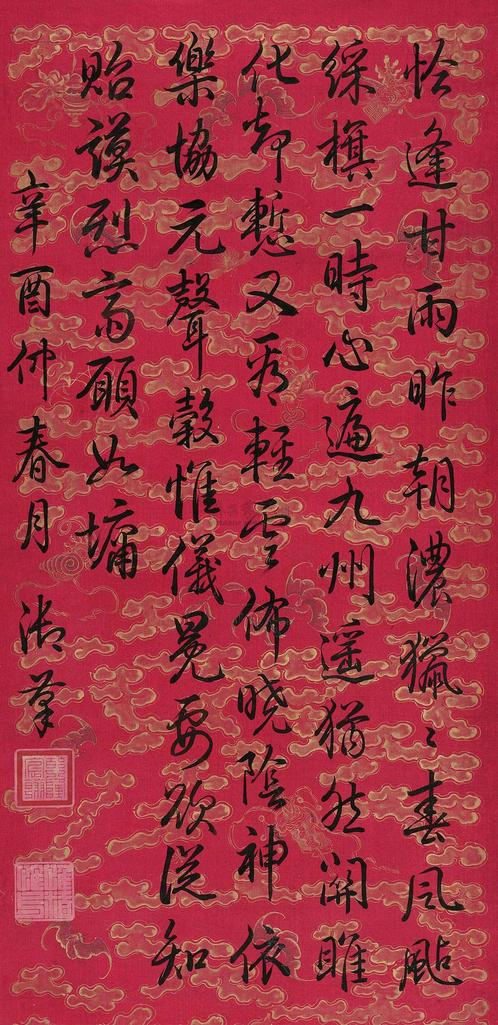 恰逢甘雨昨朝濃獵々春風颭
綵旂一時心遍九州遥猶然關雎
化却慙又看輕雲佈曉陰神依
樂協元聲穀惟儀冕要欲從知
貽謨烈高顧如墉
辛酉仲春月 御筆